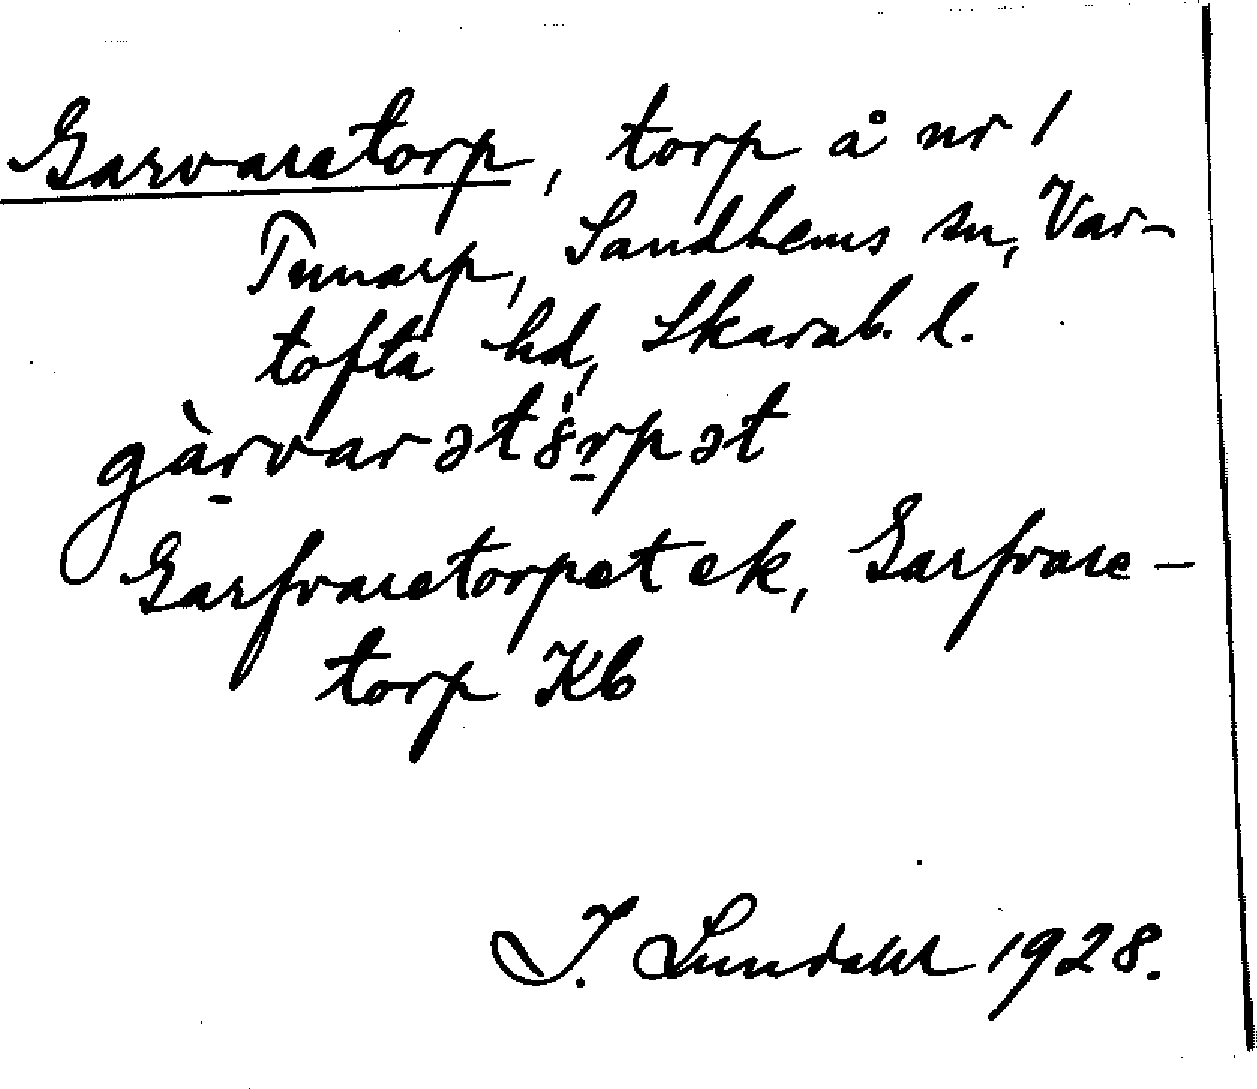 Garvaretorp, torp å nr 1
Tunarp, Sandhems sn, Var-
tofta hd, Skarab. l.
gàr̲varətȯ́r̲pət
Garfvaretorpet ek, Garfvare-
torp Kb
I. Lundahl 1928.